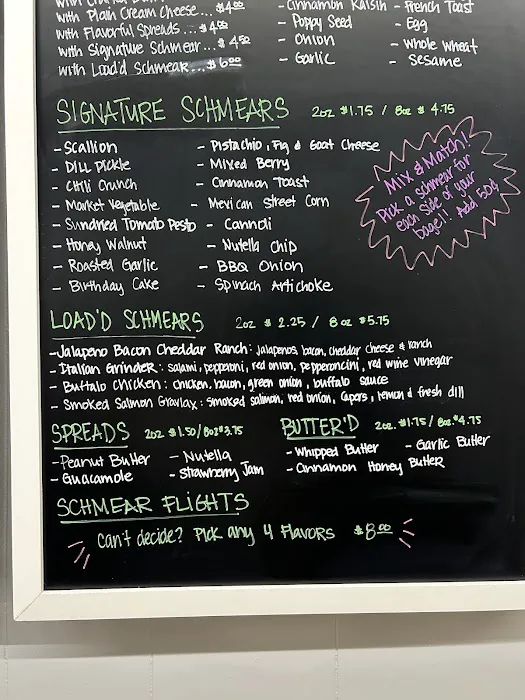 with Plain Cream Cheese... $4.00
with Flavorful Spreads... $4.00
with Signature Schmear... $4.50
with Load'd Schmear... $6.00
- Cinnamon Raisin - French Toast
- Poppy Seed - Egg
- Onion - Whole Wheat
- Garlic - Sesame
SIGNATURE SCHMEARS 2oz $1.75 / 8oz $4.75
- Scallion - Pistachio, Fig & Goat Cheese
- Dill Pickle - Mixed Berry
- Chili Crunch - Cinnamon Toast
- Market Vegetable - Mexican Street Corn
- Sundried Tomato Pesto - Cannoli
- Honey Walnut - Nutella Chip
- Roasted Garlic - BBQ Onion
- Birthday Cake - Spinach Artichoke
Mix & Match!
Pick a schmear for
each side of your
bagel! Add 50¢
LOAD'D SCHMEARS 2oz $2.25 / 8oz $5.75
- Jalapeno Bacon Cheddar Ranch: jalapenos, bacon, cheddar cheese & ranch
- Italian Grinder: salami, pepperoni, red onion, pepperoncini, red wine vinegar
- Buffalo Chicken: chicken, bacon, green onion, buffalo sauce
- Smoked Salmon Gravlax: smoked salmon, red onion, capers, lemon & fresh dill
SPREADS 2oz $1.50/8oz $3.75
- Peanut Butter - Nutella
- Guacamole - Strawberry Jam
BUTTER'D 2oz. $1.75 / 8oz. $4.75
- Whipped Butter - Garlic Butter
- Cinnamon Honey Butter
SCHMEAR FLIGHTS
Can't decide? Pick any 4 Flavors $8.00